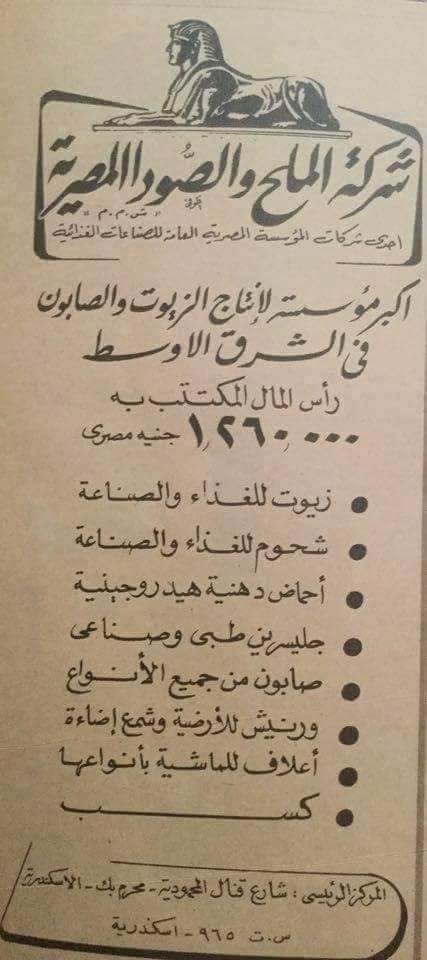 شركة الملح والصودا المصرية
"ش.م.م"
احدى شركات المؤسسة المصرية العامة للصناعات الغذائية
اكبر مؤسسة لإنتاج الزيوت والصابون
في الشرق الاوسط
رأس المال المكتتب به
١٬٢٦٠٬٠٠٠ جنيه مصرى
• زيوت للغذاء والصناعة
• شحوم للغذاء والصناعة
• أحماض دهنية هيدروجينية
• جليسرين طبى وصناعى
• صابون من جميع الأنواع
• ورنيش للأرضية وشمع إضاءة
• أعلاف للماشية بأنواعها
• كسب
المركز الرئيسى : شارع قنال المحمودية - محرم بك - الاسكندرية
س.ت ٩٦٥ - اسكندرية